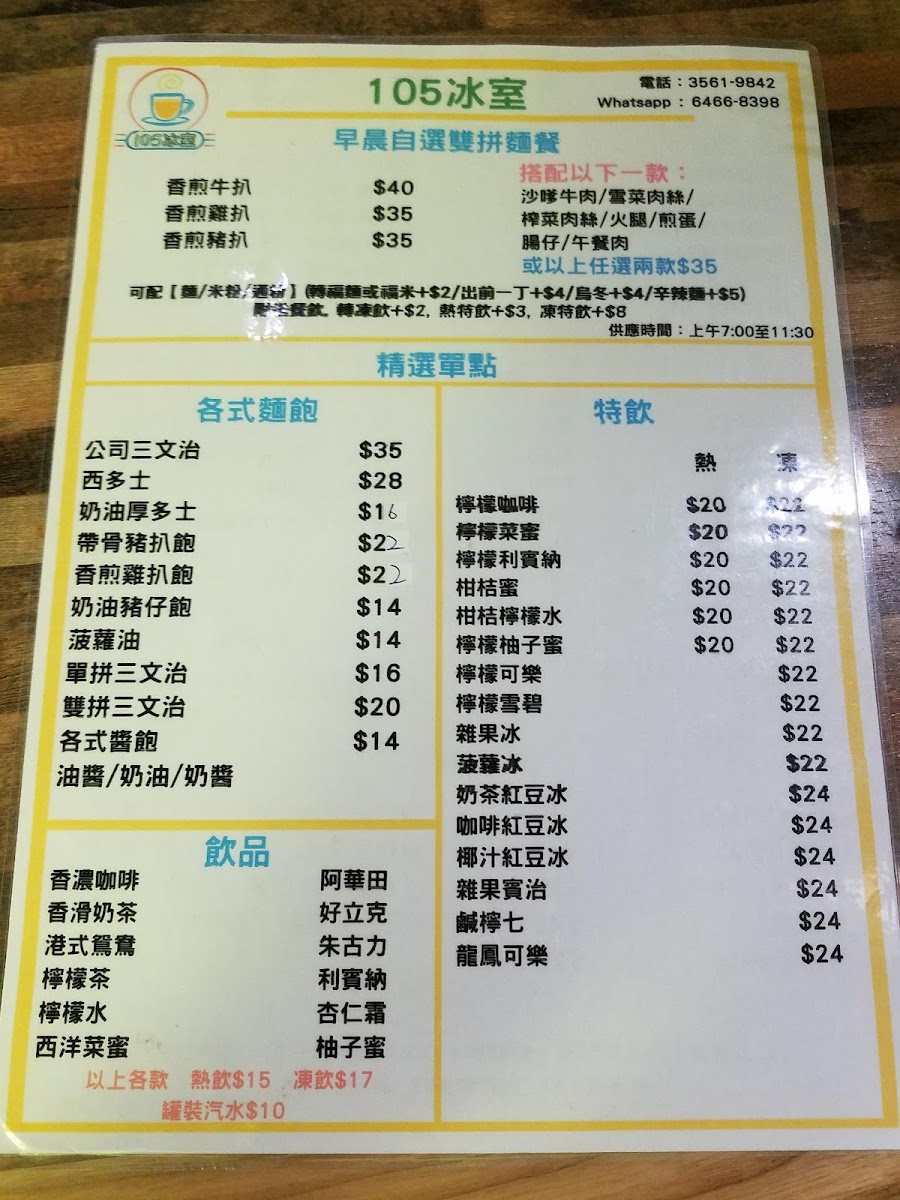 105冰室
105冰室
電話：3561-9842
Whatsapp：6466-8398
早晨自選雙拼麵餐
香煎牛扒 $40
香煎雞扒 $35
香煎豬扒 $35
搭配以下一款：
沙嗲牛肉/雪菜肉絲/
榨菜肉絲/火腿/煎蛋/
腸仔/午餐肉
或以上任選兩款$35
可配【麵/米粉/通粉】(轉福麵或福米+$2/出前一丁+$4/烏冬+$4/辛辣麵+$5)
附送餐飲, 轉凍飲+$2, 熱特飲+$3, 凍特飲+$8
供應時間：上午7:00至11:30
精選單點
各式麵飽
公司三文治 $35
西多士 $28
奶油厚多士 $16
帶骨豬扒飽 $22
香煎雞扒飽 $22
奶油豬仔飽 $14
菠蘿油 $14
單拼三文治 $16
雙拼三文治 $20
各式醬飽 $14
油醬/奶油/奶醬
飲品
香濃咖啡 阿華田
香滑奶茶 好立克
港式鴛鴦 朱古力
檸檬茶 利賓納
檸檬水 杏仁霜
西洋菜蜜 柚子蜜
以上各款 熱飲$15 凍飲$17
罐裝汽水$10
特飲
熱 凍
檸檬咖啡 $20 $22
檸檬菜蜜 $20 $22
檸檬利賓納 $20 $22
柑桔蜜 $20 $22
柑桔檸檬水 $20 $22
檸檬柚子蜜 $20 $22
檸檬可樂 $22
檸檬雪碧 $22
雜果冰 $22
菠蘿冰 $22
奶茶紅豆冰 $24
咖啡紅豆冰 $24
椰汁紅豆冰 $24
雜果賓治 $24
鹹檸七 $24
龍鳳可樂 $24